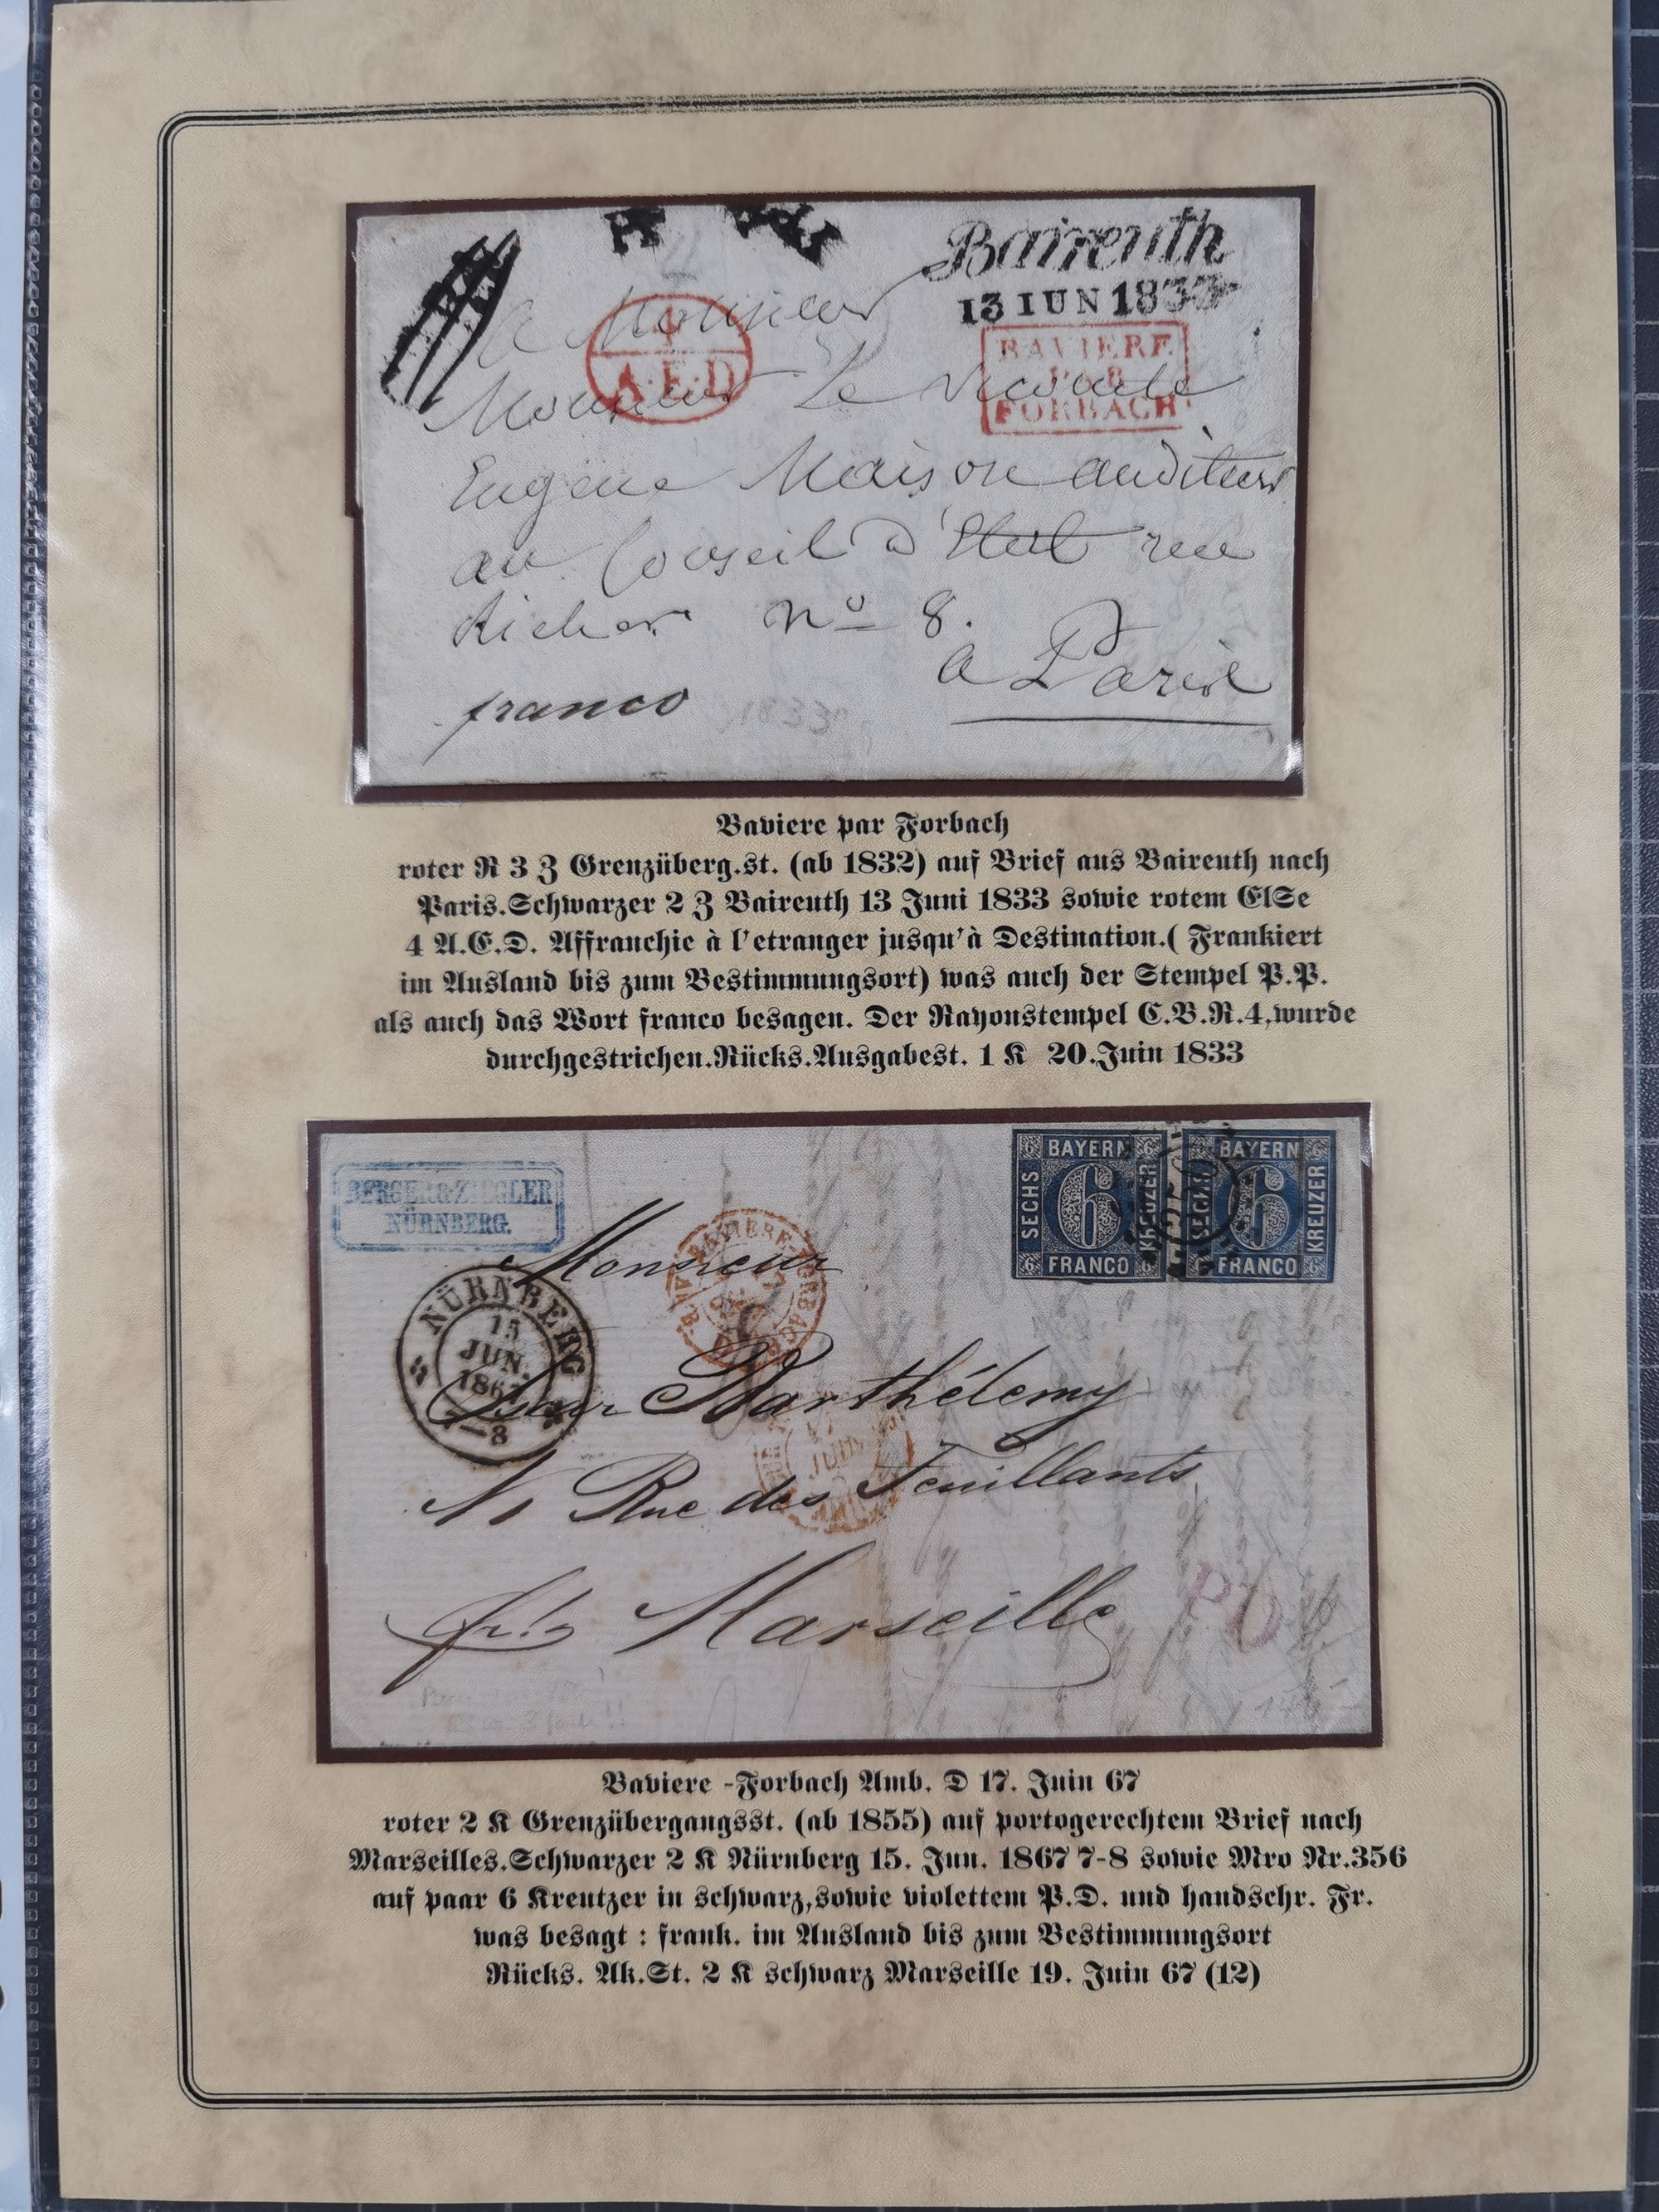 Baireuth
13 IUN 1833
4
A.E.D
BAVIERE
PAR
FORBACH
a Monsieur
Monsieur Le Vicomte
Eugène Maison auditeur
au Conseil d'Etat rue
Richer no 8.
a Paris
franco
1833
Baviere par Forbach
roter R 3 Z Grenzüberg.st. (ab 1832) auf Brief aus Baireuth nach
Paris.Schwarzer 2 Z Baireuth 13 Juni 1833 sowie rotem ElSe
4 A.E.D. Affranchie à l'etranger jusqu'à Destination.( Frankiert
im Ausland bis zum Bestimmungsort) was auch der Stempel P.P.
als auch das Wort franco besagen. Der Rayonstempel C.B.R.4,wurde
durchgestrichen.Rücks.Ausgabest. 1 K 20.Juin 1833
BERGER & ZIEGLER
NÜRNBERG.
BAYERN
SECHS
6
KREUZER
FRANCO
BAYERN
SECHS
6
KREUZER
FRANCO
NÜRNBERG
15
JUN.
186
7-8
BAVIERE-FORBACH
Monsieur
Barthélemy
N 1 Rue des Feuillants
JUIN
Marseille
PD
Baviere -Forbach Amb. D 17. Juin 67
roter 2 K Grenzübergangsst. (ab 1855) auf portogerechtem Brief nach
Marseilles.Schwarzer 2 K Nürnberg 15. Jun. 1867 7-8 sowie Mro Nr.356
auf paar 6 Kreutzer in schwarz,sowie violettem P.D. und handschr. Fr.
was besagt : frank. im Ausland bis zum Bestimmungsort
Rücks. Ak.St. 2 K schwarz Marseille 19. Juin 67 (12)